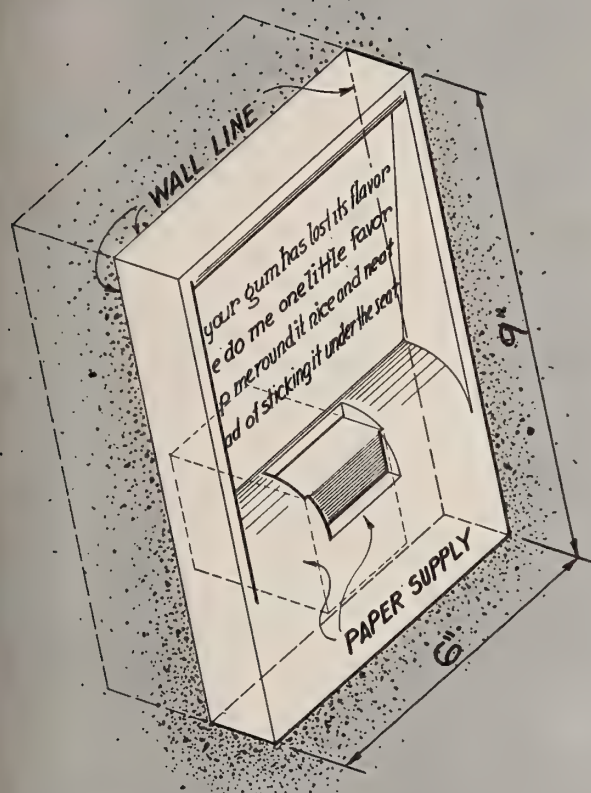 WALL LINE
your gum has lost its flavor
e do me one little favor
p me round it nice and neat
ad of sticking it under the seat
9"
PAPER SUPPLY
6"